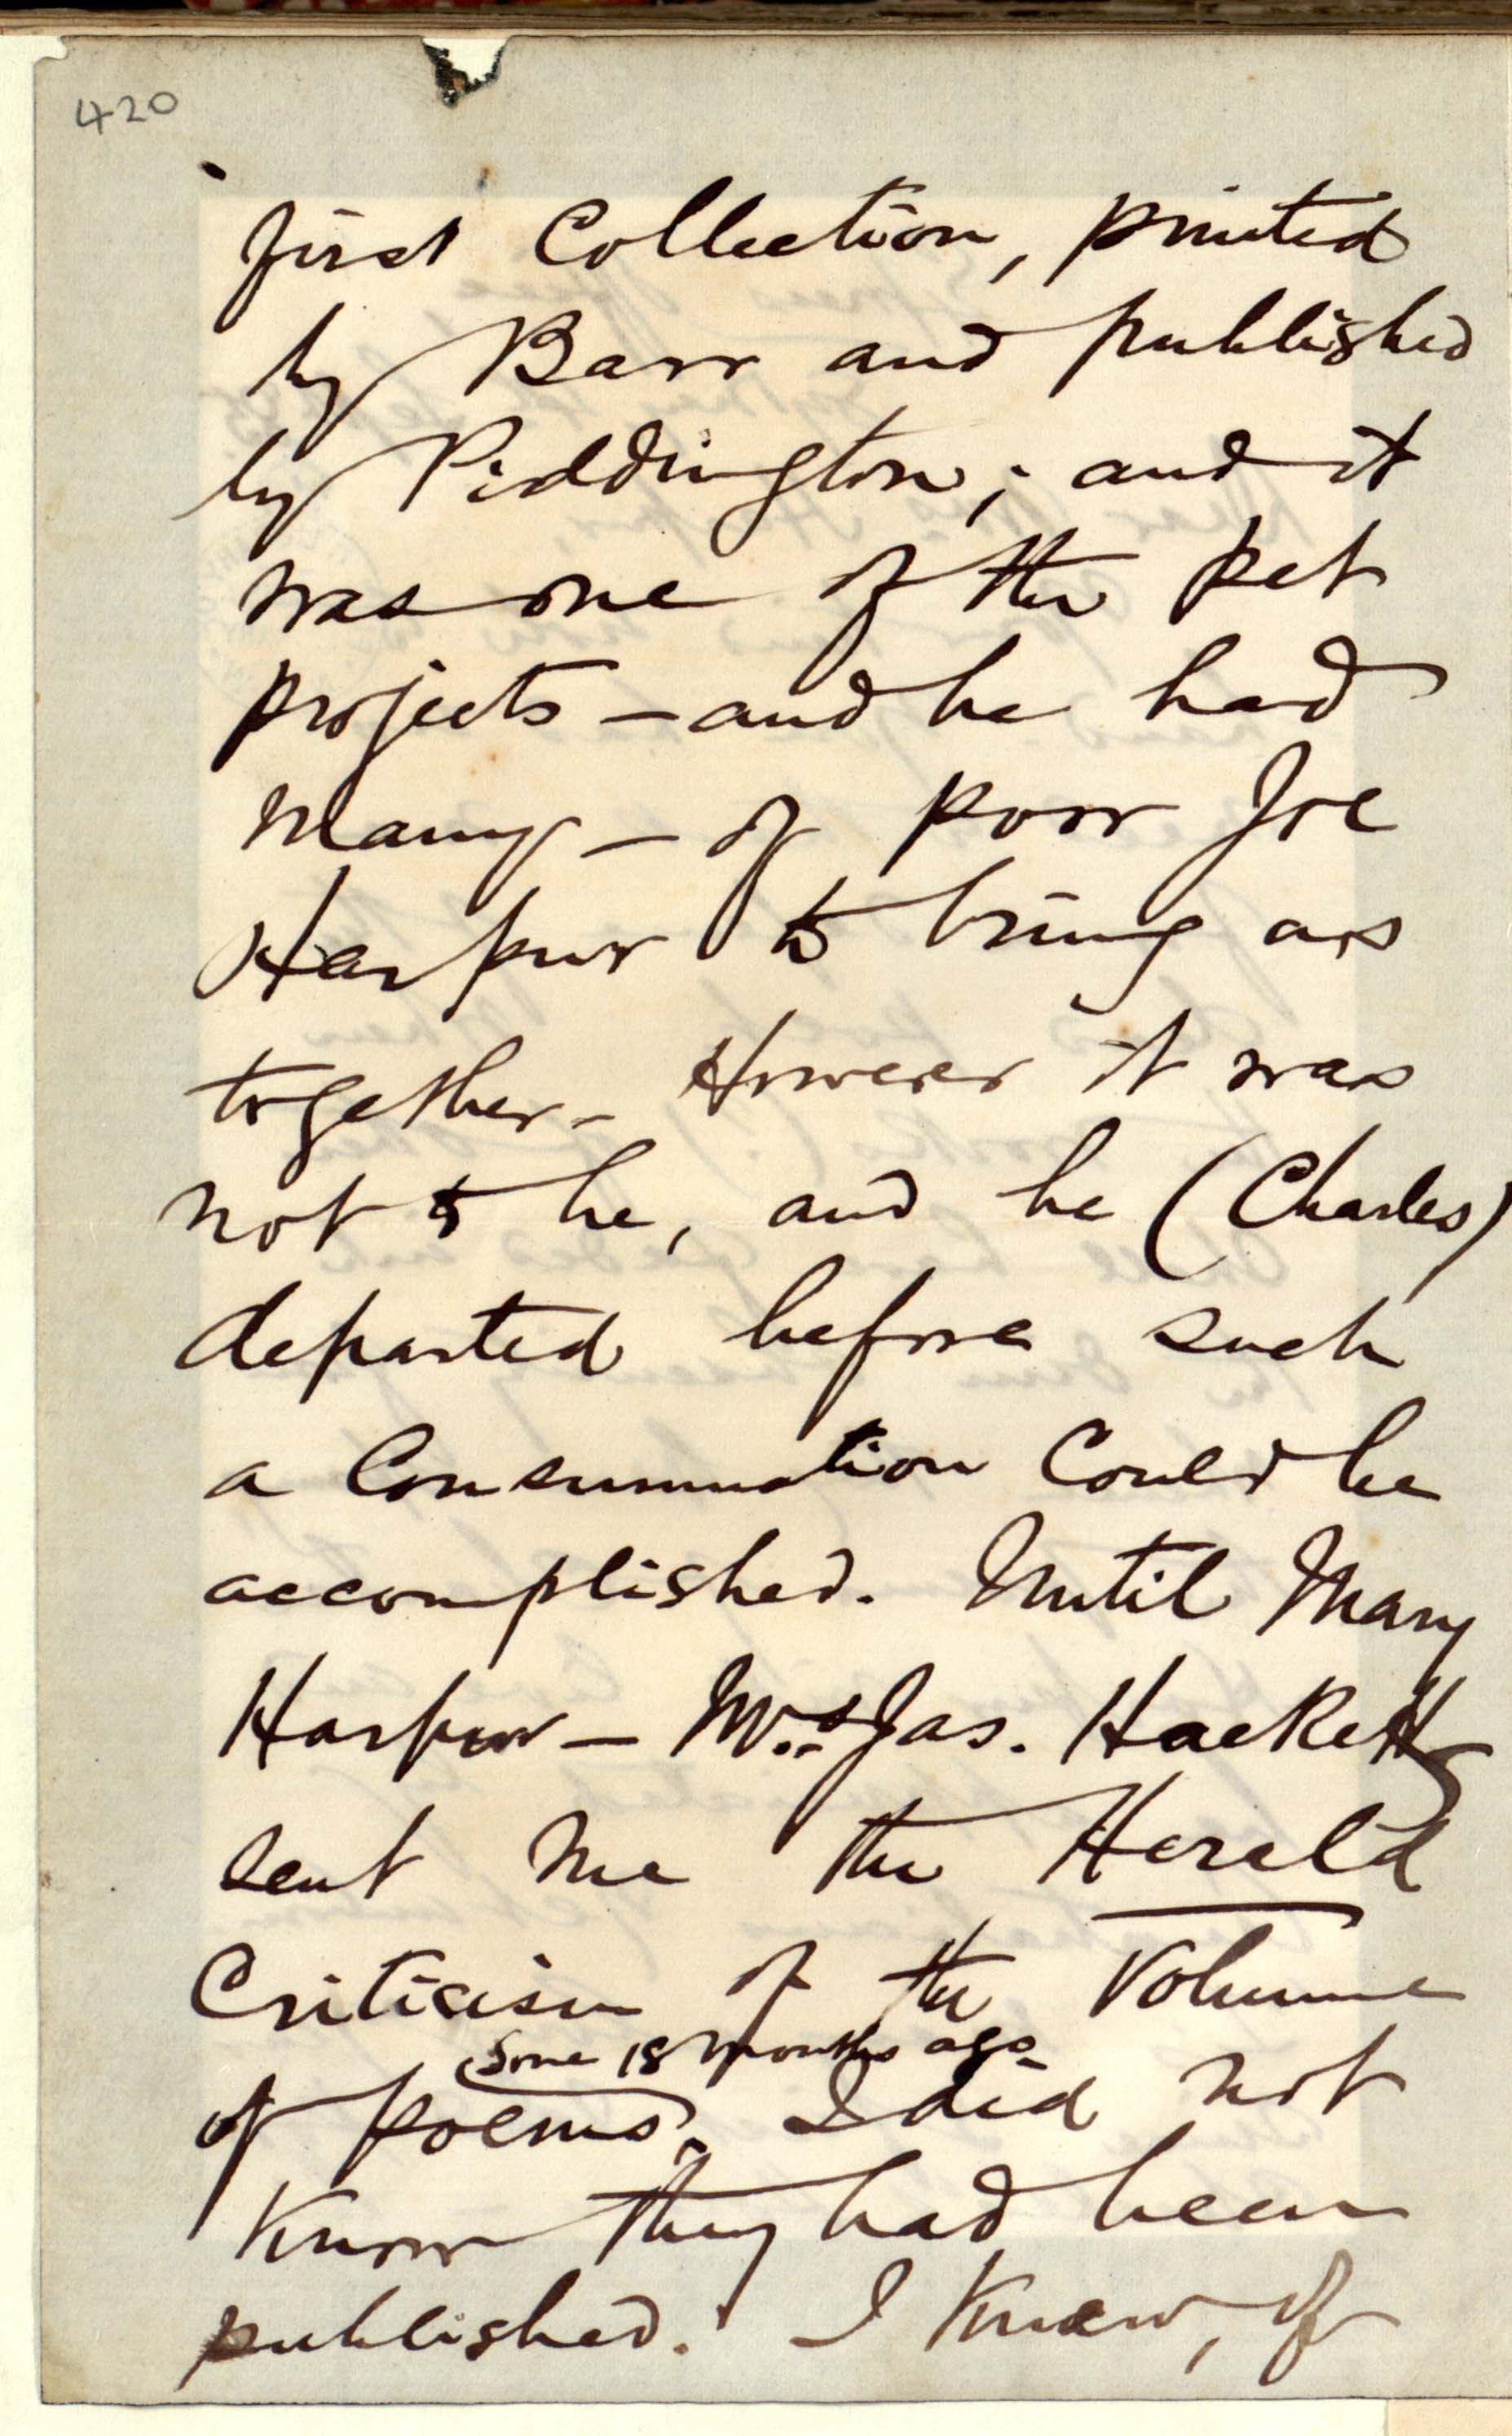 420
first Collection, printed
by Barr and published
by Piddington; and it
was one of the pet
projects – and he had
many – of poor Joe
Harpur to bring us
together – However it was
not to be, and he (Charles)
departed before such
a Consummation Could be
accomplished. Until Mary
Harpur – Mrs Jas. Hackett
sent me the Herald
Criticism of the Volume
some 18 months ago
of poems, I did not
Know they had been
published. I Knew, of